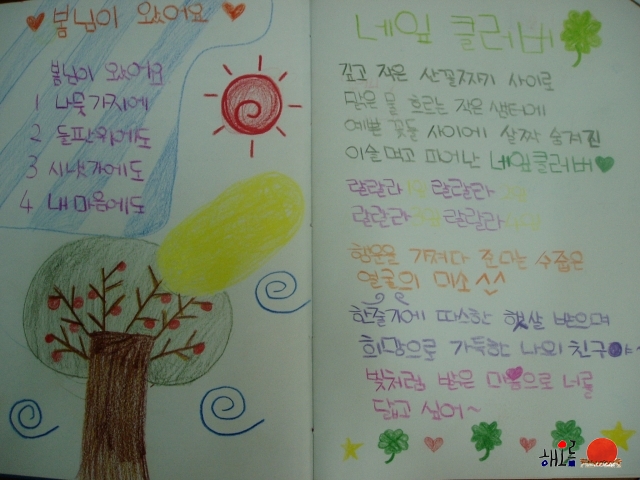 봄님이 왔어요
봄님이 왔어요
1 나뭇가지에
2 들판위에도
3 시냇가에도
4 내 마음에도
네잎 클러버
깊고 작은 산골짜기 사이로
맑은 물 흐르는 작은 샘터에
예쁜 꽃들 사이에 살짝 숨겨진
이슬먹고 피어난 네잎클러버
랄랄라 한잎 랄랄라 두잎
랄랄라 세잎 랄랄라 네잎
행운을 가져다 준다는 수줍은
얼굴의 미소^^
한줄기에 따스한 햇살 받으며
희망으로 가득한 나의 친구야~
빛처럼 밝은 마음으로 너를
닮고 싶어~
해오름